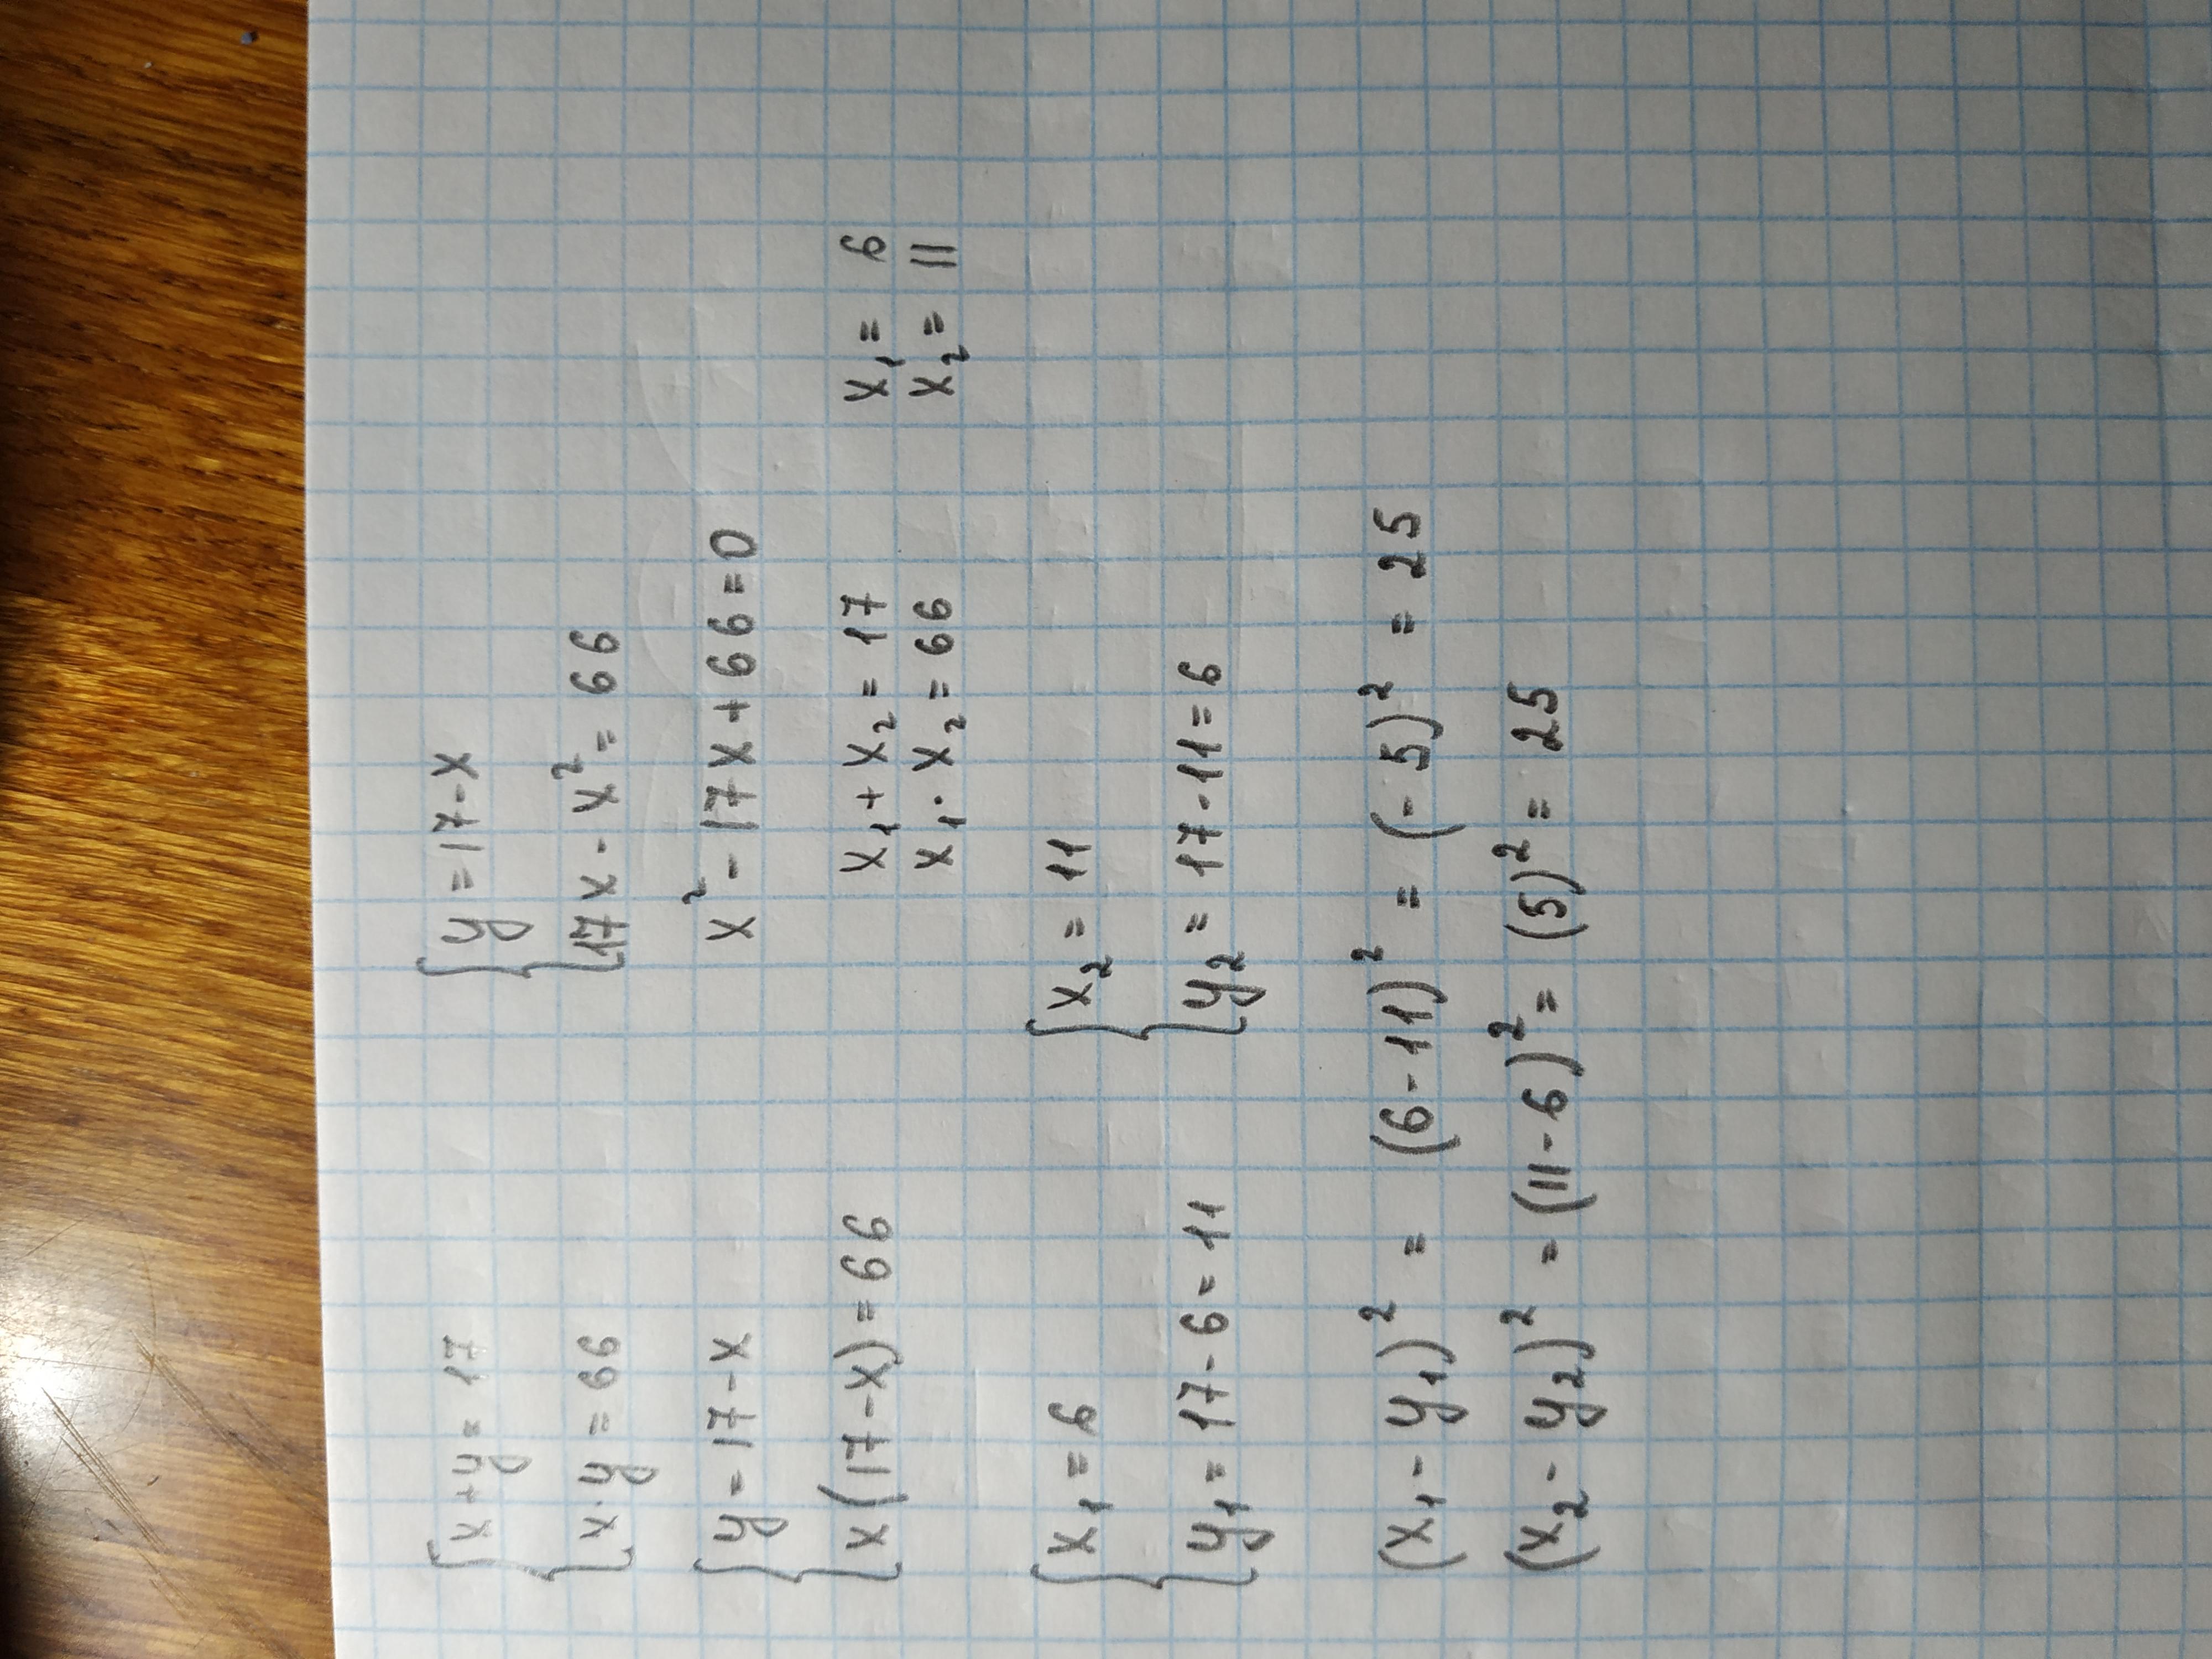 { x + y = 17
{ y = 17 - x
{ x · y = 66
{ 17x - x² = 66
{ y = 17 - x
x² - 17x + 66 = 0
{ x(17 - x) = 66
x₁ + x₂ = 17
x₁ = 6
x₁ · x₂ = 66
x₂ = 11
{ x₁ = 6
{ x₂ = 11
{ y₁ = 17 - 6 = 11
{ y₂ = 17 - 11 = 6
(x₁ - y₁)² = (6 - 11)² = (-5)² = 25
(x₂ - y₂)² = (11 - 6)² = (5)² = 25